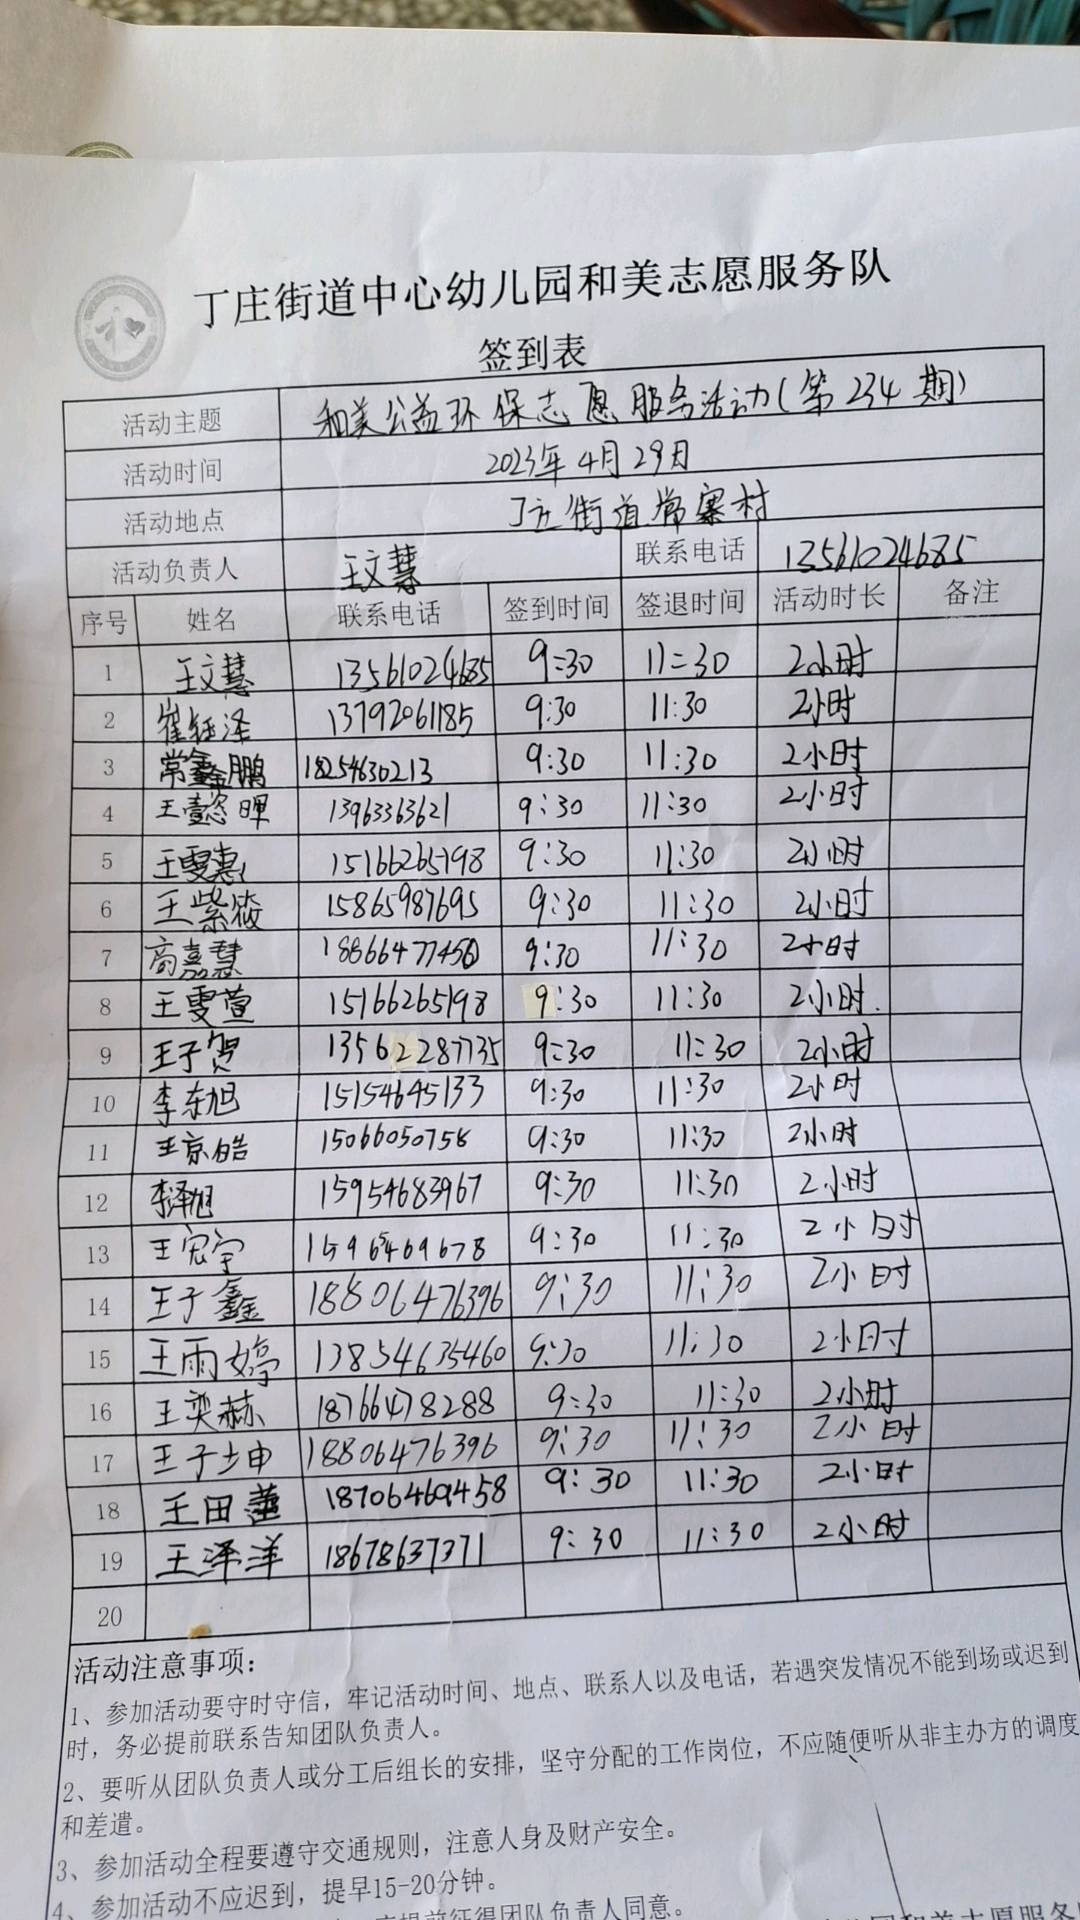 丁庄街道中心幼儿园和美志愿服务队
签到表
活动主题 和美公益环保志愿服务活动(第234期)
活动时间 2023年4月29日
活动地点 丁庄街道常寨村
活动负责人 王文慧 联系电话 13561024685
序号 姓名 联系电话 签到时间 签退时间 活动时长 备注
1 王文慧 13561024685 9:30 11:30 2小时
2 崔钰泽 13792061185 9:30 11:30 2小时
3 常鑫鹏 18254630213 9:30 11:30 2小时
4 王懿暉 13963363621 9:30 11:30 2小时
5 王雯惠 15166265198 9:30 11:30 2小时
6 王紫筱 15865987695 9:30 11:30 2小时
7 商嘉慧 18866477450 9:30 11:30 2小时
8 王雯萱 15166265198 9:30 11:30 2小时.
9 王子贺 13562287735 9:30 11:30 2小时
10 李东旭 15154645133 9:30 11:30 2小时
11 王京皓 15066050758 9:30 11:30 2小时
12 李泽旭 15954683967 9:30 11:30 2小时
13 王宏宇 15965469678 9:30 11:30 2小时
14 王子鑫 18806476396 9:30 11:30 2小时
15 王雨婷 13854635460 9:30 11:30 2小时
16 王奕赫 18766478288 9:30 11:30 2小时
17 王子坤 18806476396 9:30 11:30 2小时
18 王田 18706469458 9:30 11:30 2小时
19 王泽洋 18678637371 9:30 11:30 2小时
20
活动注意事项:
1、参加活动要守时守信，牢记活动时间、地点、联系人以及电话，若遇突发情况不能到场或迟到
时，务必提前联系告知团队负责人。
2、要听从团队负责人或分工后组长的安排，坚守分配的工作岗位，不应随便听从非主办方的调度
和差遣。
3、参加活动全程要遵守交通规则，注意人身及财产安全。
4、参加活动不应迟到，提早15-20分钟。
提前征得团队负责人同意。
园和美志愿服务